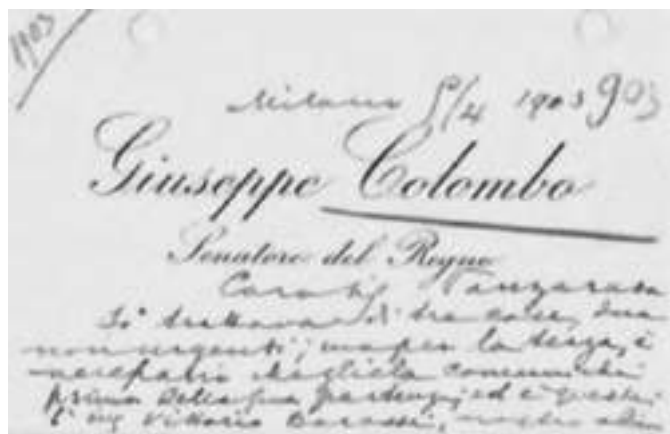 1903
Milano 5/4 1903 903
Giuseppe Colombo
Senatore del Regno
Caro Sig. Panzarasa
Si trattava di tre cose, due
non urgenti; ma per la terza, è
necessario che gliela comunichi
prima della sua partenza, ed è questa:
l'ing Vittorio Barassi,